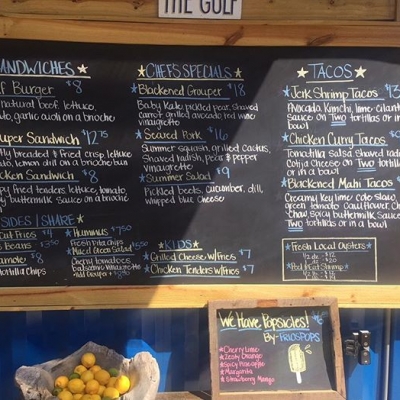 THE GULF
SANDWICHES
Burger $8
natural beef, lettuce,
garlic aioli on a brioche
Sandwich $12.75
breaded & fried crisp lettuce
lemon dill on a brioche bun
Sandwich $8
fried tenders lettuce, tomato
buttermilk sauce on a brioche
SIDES / SHARE
Fries $4
Beans $3.50
$8
Tortilla Chips
Hummus $7.50
Fresh Pita chips
Mixed Green Salad $7.50
Cherry tomatoes
balsamic vinaigrette
Add Grouper +
CHEFS SPECIALS
Blackened Grouper $18
Baby Kale, pickled pear, shaved
carrot, grilled avocado, red wine
vinaigrette
Seared Pork $16
Summer squash, grilled cactus,
shaved radish, pear & pepper
vinaigrette
Summer Salad $9
Pickled beets, cucumber, dill,
whipped blue cheese
KIDS
Grilled Cheese w/Fries $7
Chicken Tenders w/Fries $7
TACOS
Jerk Shrimp Tacos $13
Avocado, Kimchi, lime-cilantro
sauce on Two tortillas or
in a bowl
Chicken Curry Tacos
Tomatillo salsa, shaved radish
Cotija cheese on Two tortillas
or in a bowl
Blackened Mahi Tacos
Creamy key lime cole slaw,
green tomato, cauliflower
Chow, spicy buttermilk sauce
Two tortillas or in a bowl
Fresh Local Oysters
1/2 dz - $12
dz - $20
Peel & Eat Shrimp
We Have Popsicles! $6
By: FRIOSPOPS
Cherry Lime
Zesty Orange
Spicy Pineapple
Margarita
Strawberry Mango